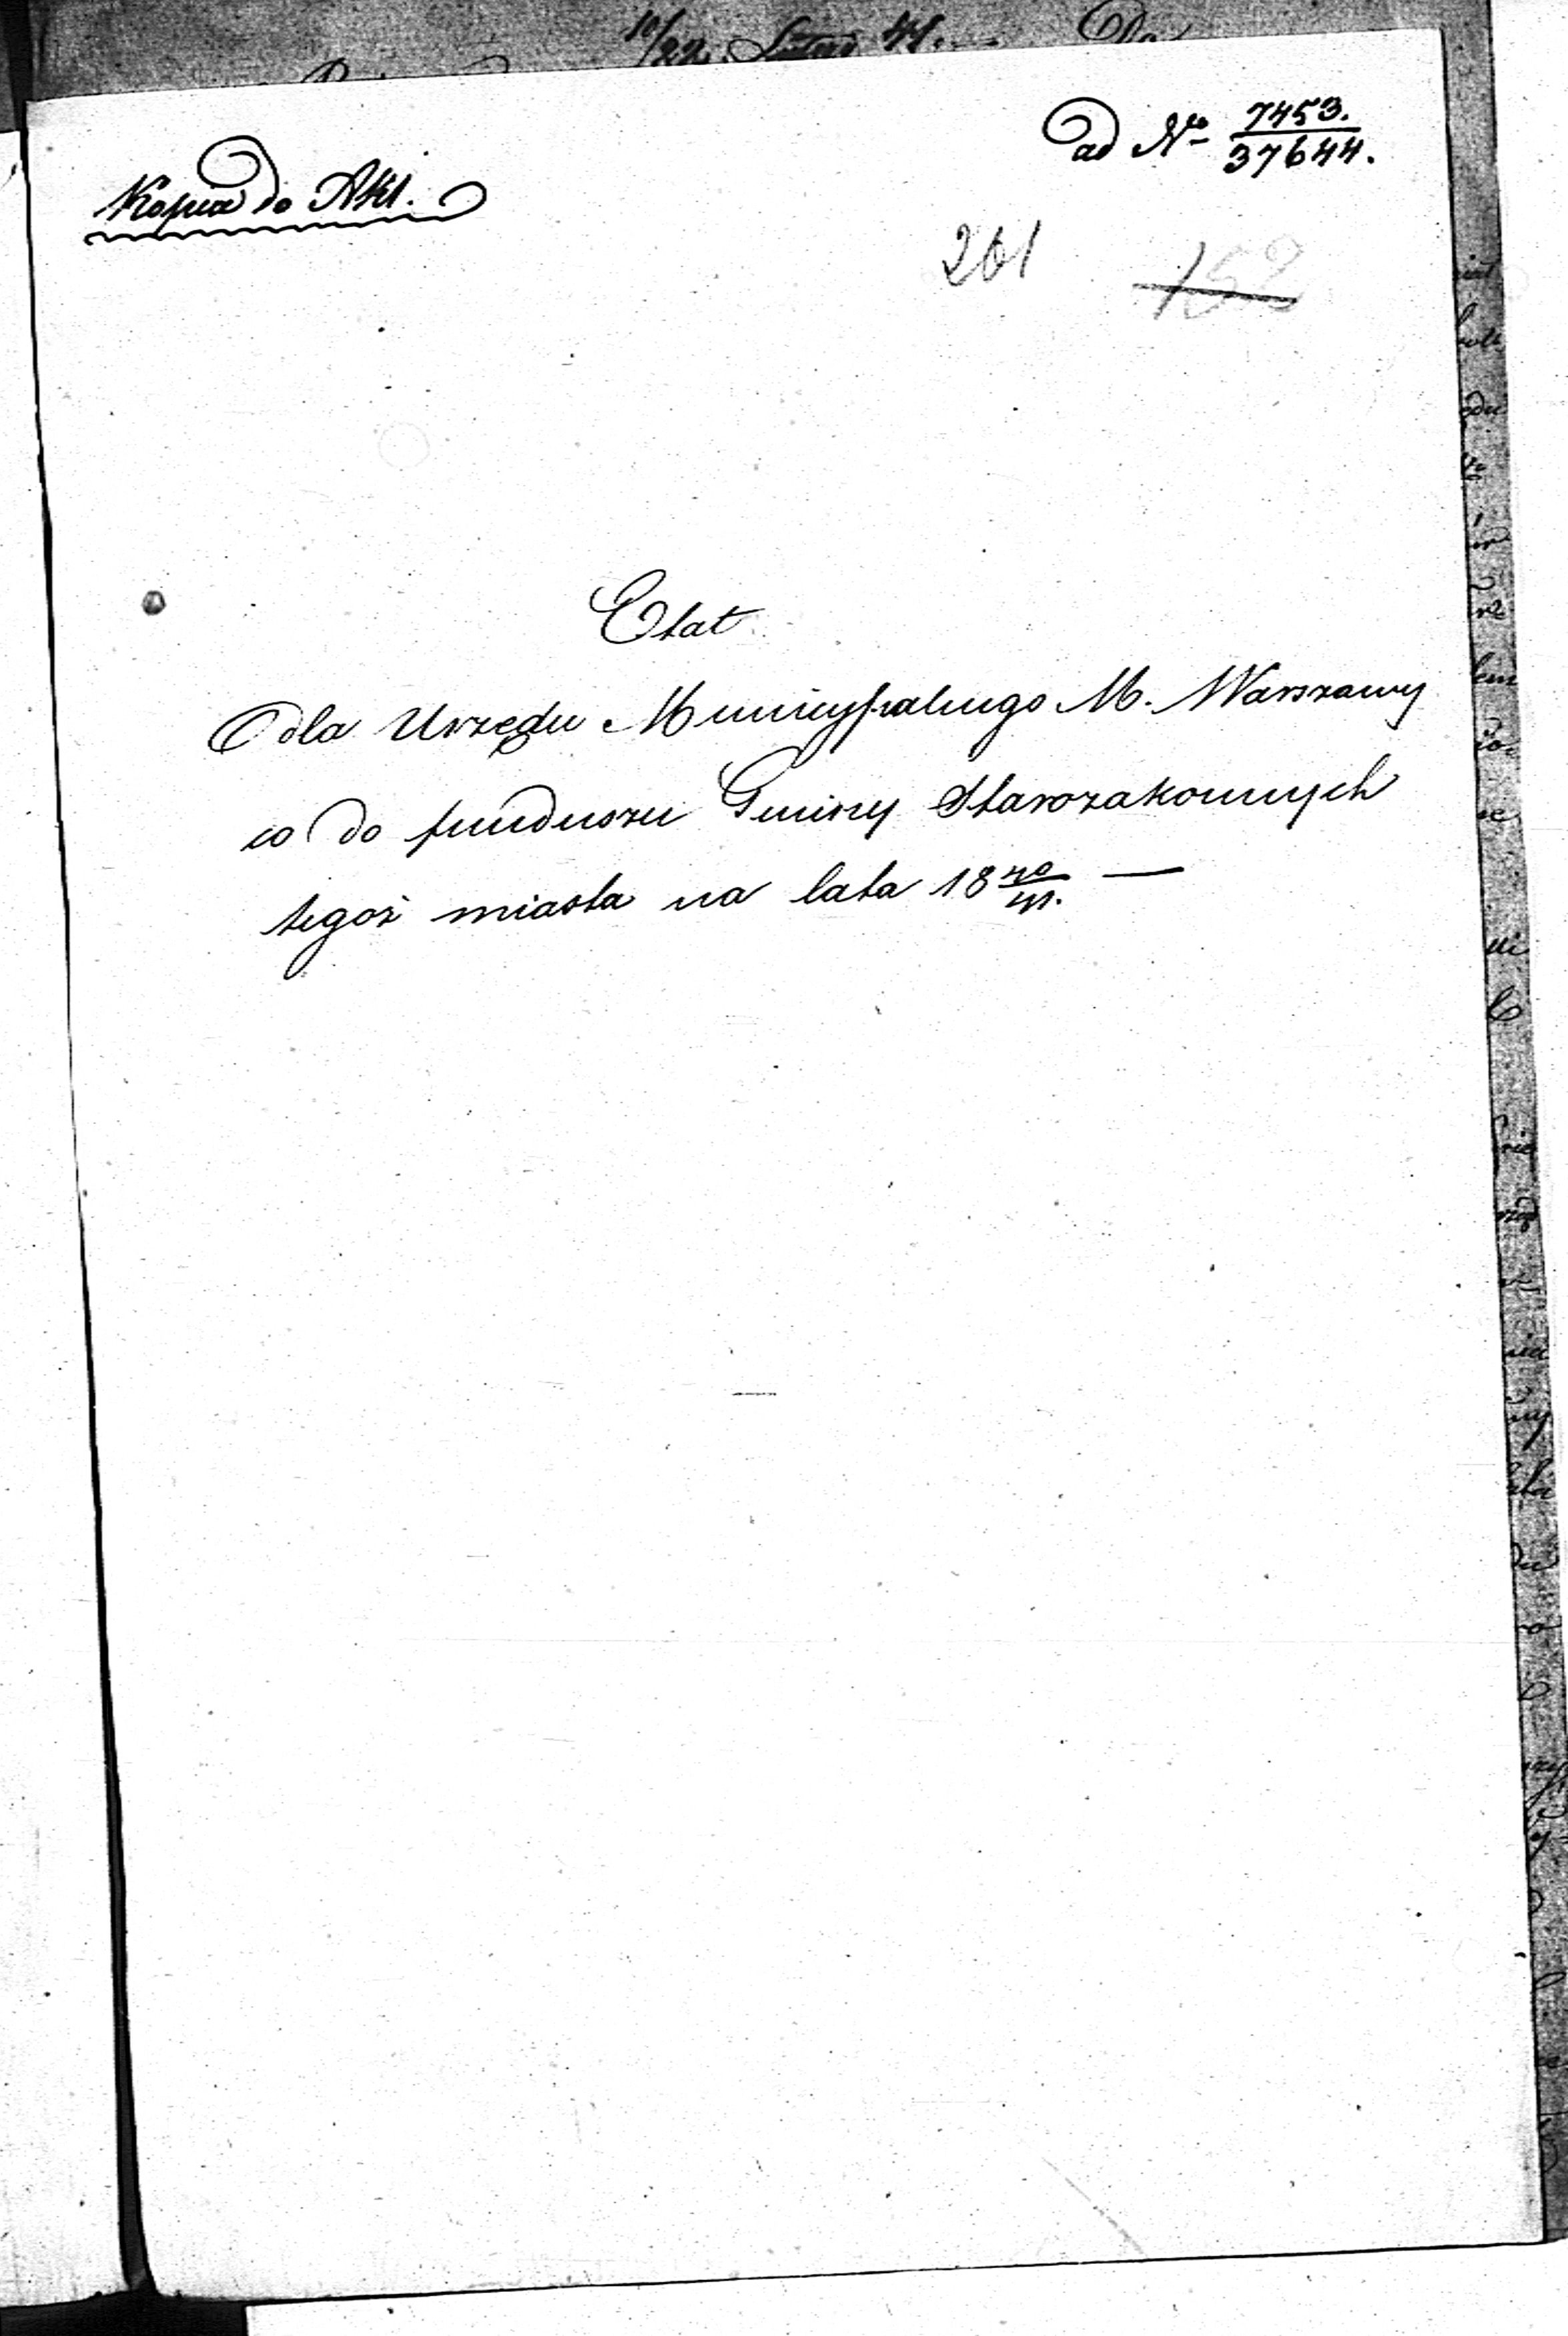 10/22 Lutego 41.
ad No 7453./37644.
Kopia do Akt.
201 152
Etat
dla Urzędu Municypalnego M. Warszawy
co do funduszu Gminy Starozakonnych
tegoż miasta na lata 18 40/41. —